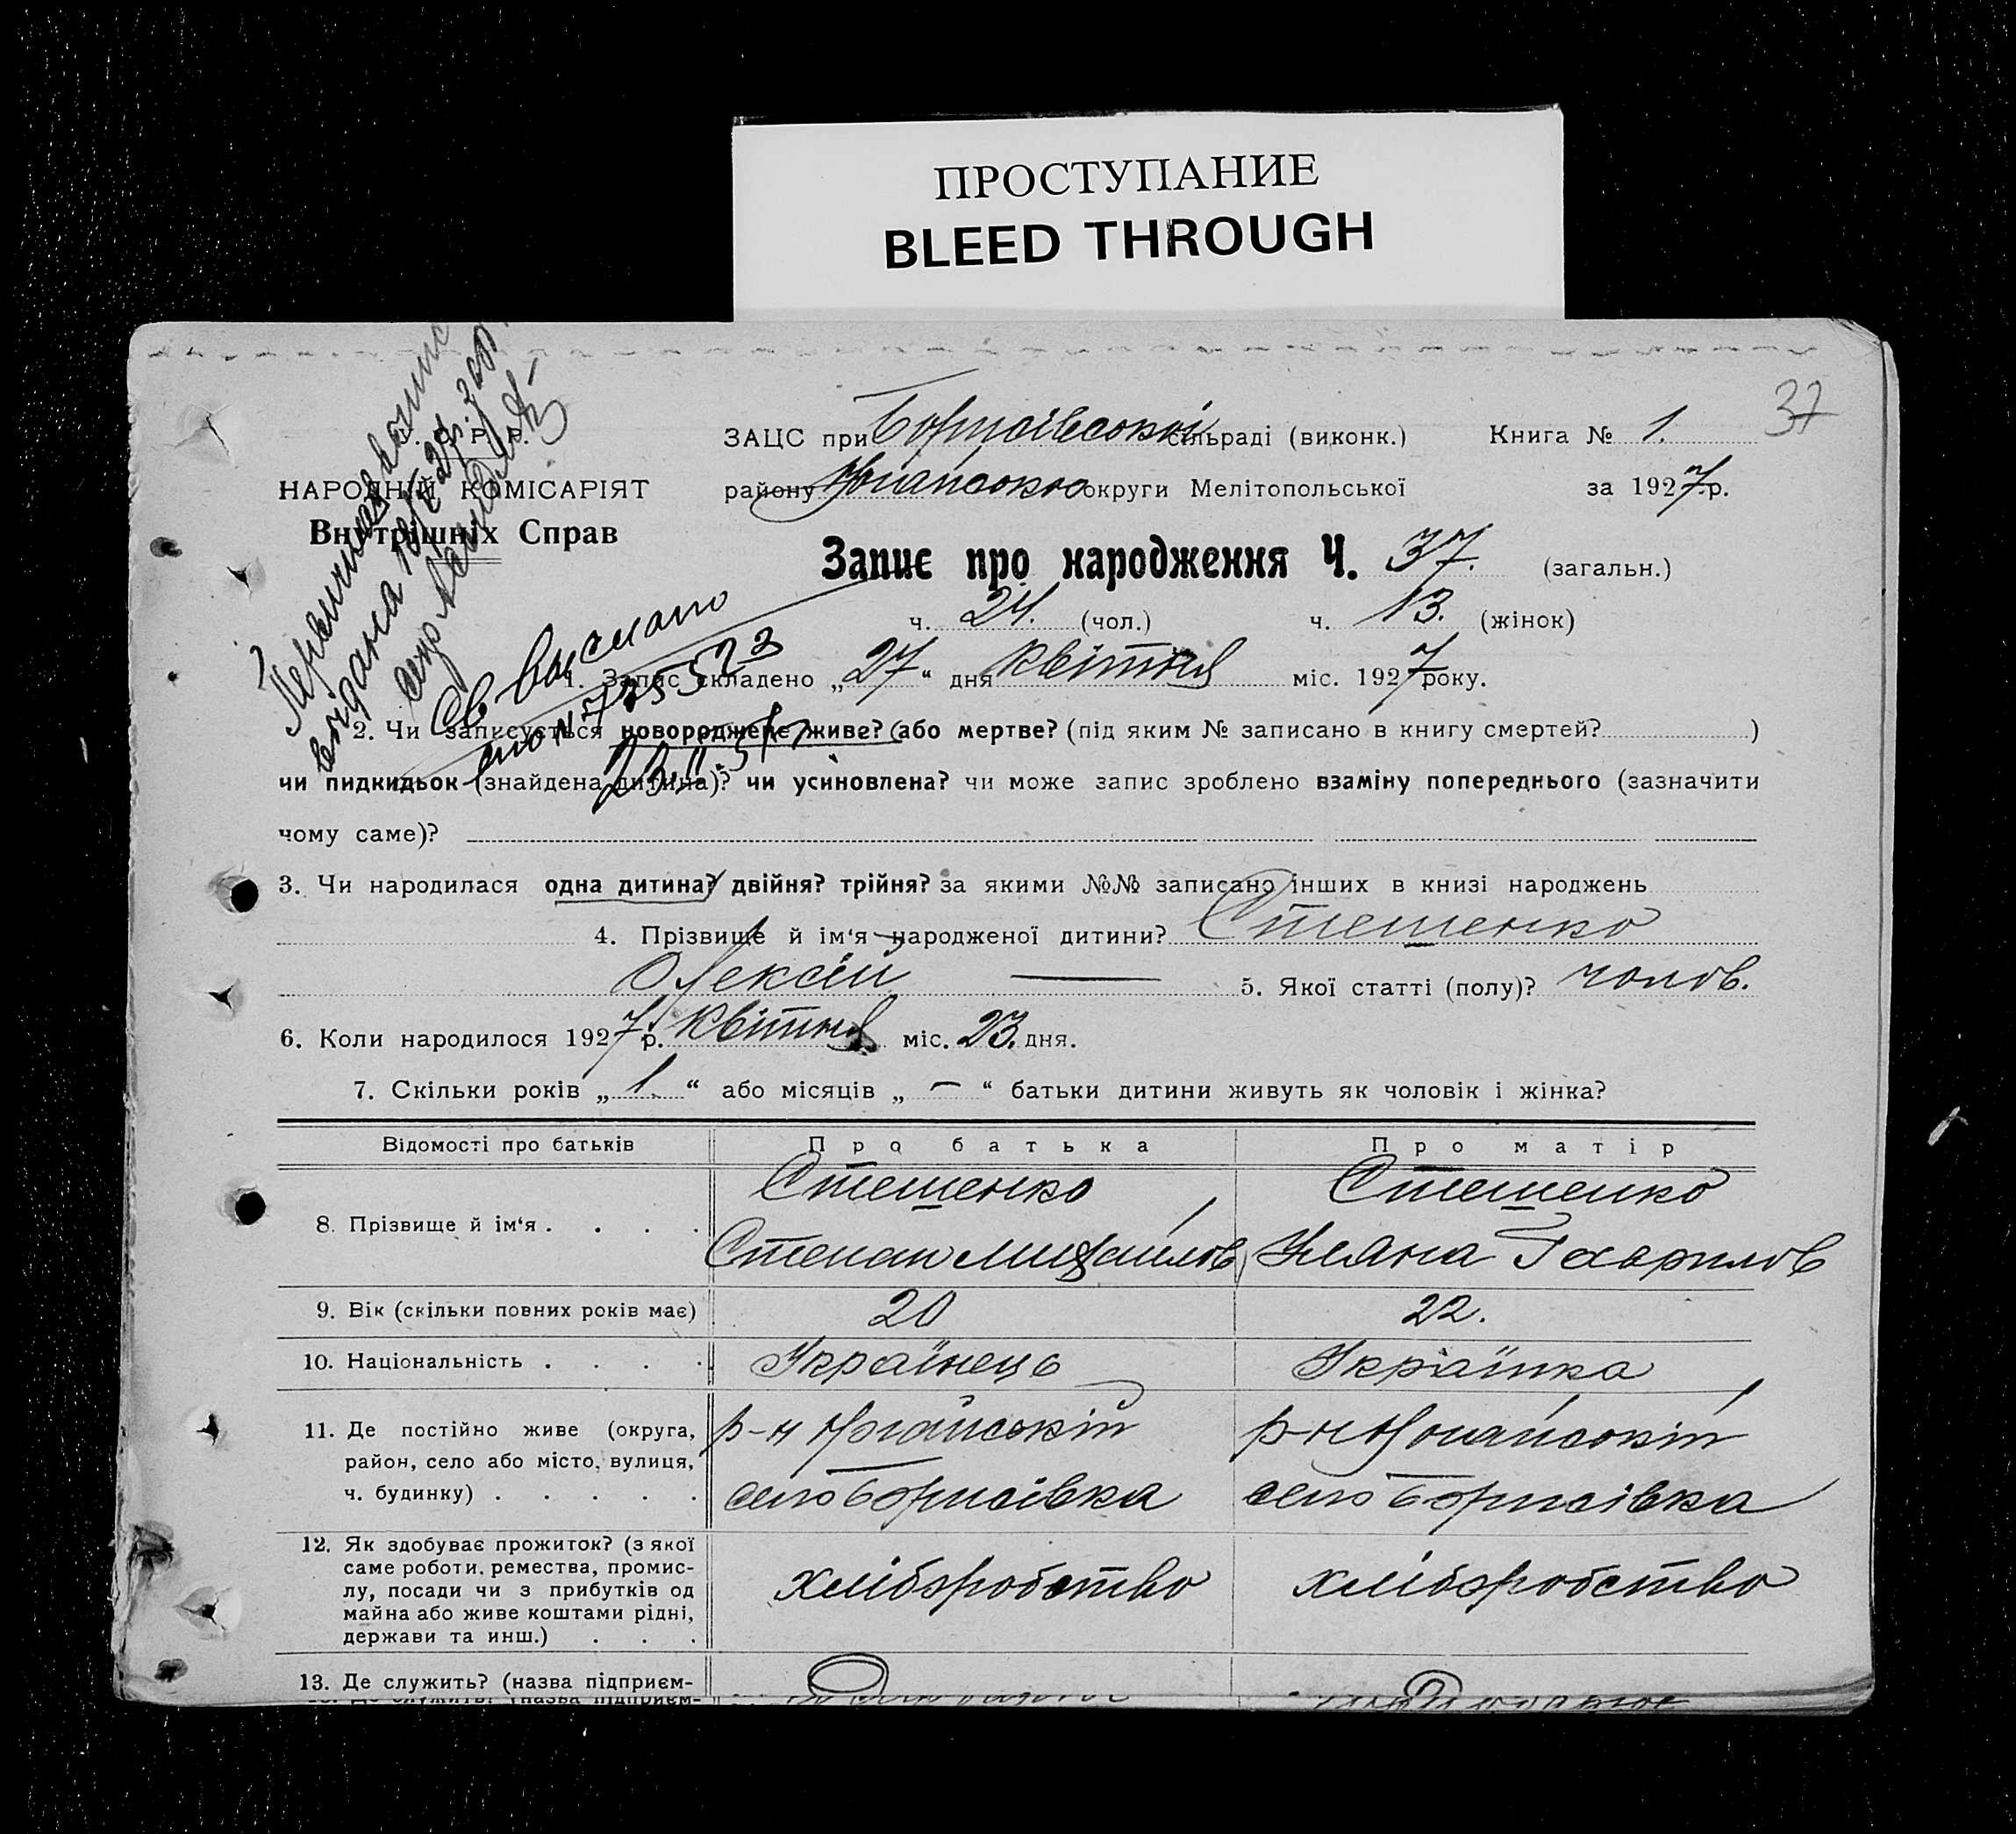 ПРОСТУПАНИЕ
BLEED THROUGH
37
У. С. Р. Р.
НАРОДНІЙ КОМІСАРІЯТ
Внутрішніх Справ
ЗАЦС при Борисівської сільраді (виконк.) Книга № 1.
району округи Мелітопольської за 1927 р.
Запис про народження Ч. 37. (загальн.)
ч. 24. (чол.) ч. 13. (жінок)
1. Запис складено „27“ дня квітня міс. 1927 року.
2. Чи записується новороджене живе? (або мертве? (під яким № записано в книгу смертей? )
чи пидкидьок (знайдена дитина)? чи усиновлена? чи може запис зроблено взаміну попереднього (зазначити
чому саме)?
3. Чи народилася одна дитина? двійня? трійня? за якими №№ записано інших в книзі народжень
4. Прізвище й ім‘я народженої дитини? Стешенко
Олексій — 5. Якої статті (полу)? чолов.
6. Коли народилося 1927 р. квітня міс. 23. дня.
7. Скільки років „1.“ або місяців „—“ батьки дитини живуть як чоловік і жінка?
Відомості про батьків Про батька Про матір
8. Прізвище й ім‘я . . . . Стешенко Стешенко
Степан Михайлов Уляна Гаврилов
9. Вік (скільки повних років має) 20 22.
10. Національність . . . . Українець Українка
11. Де постійно живе (округа, р-н р-н
район, село або місто, вулиця,
ч. будинку) . . . . . село Борисівка село Борисівка
12. Як здобуває прожиток? (з якої
саме роботи, ремества, промис-
лу, посади чи з прибутків од хліборобство хліборобство
майна або живе коштами рідні,
держави та инш.) . . .
13. Де служить? (назва підприєм-